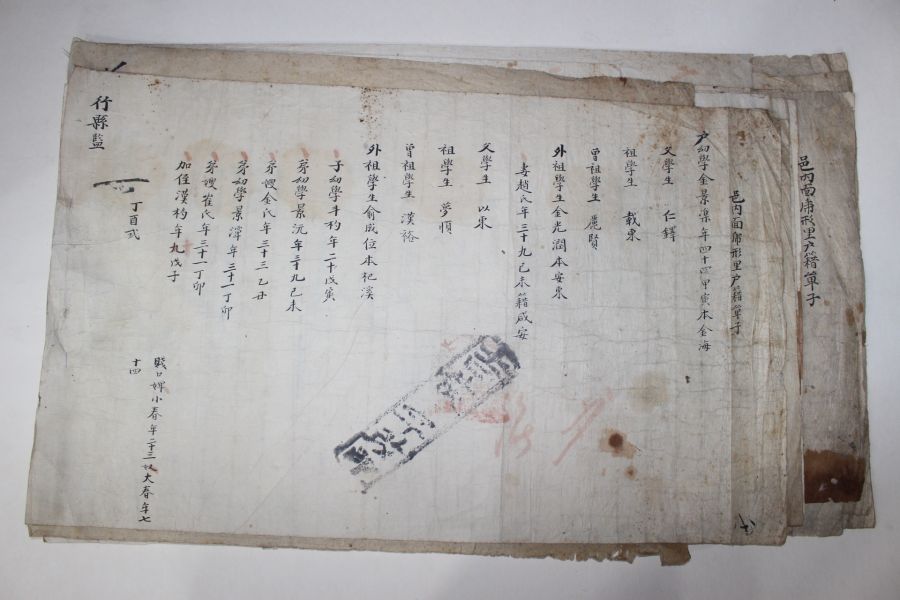 邑內面庸形里戶籍單子
邑內面庸形里戶籍單子
戶幼學金景濂年四十四甲寅本金海
父學生 仁鐸
祖學生 載東
曾祖學生 麗賢
外祖學生金光潤本安東
妻趙氏年三十九己未籍咸安
父學生 以東
祖學生 夢愼
曾祖學生 漢裕
外祖學生俞成位本杞溪
子幼學斗杓年二十戊寅
弟幼學景沅年三十九己未
弟嫂金氏年三十三乙丑
弟幼學景濂年三十一丁卯
弟嫂崔氏年三十一丁卯
加侄漢杓年九戊子
賤口婢小春年二十三奴大春年七
十四
丁酉式
行縣監